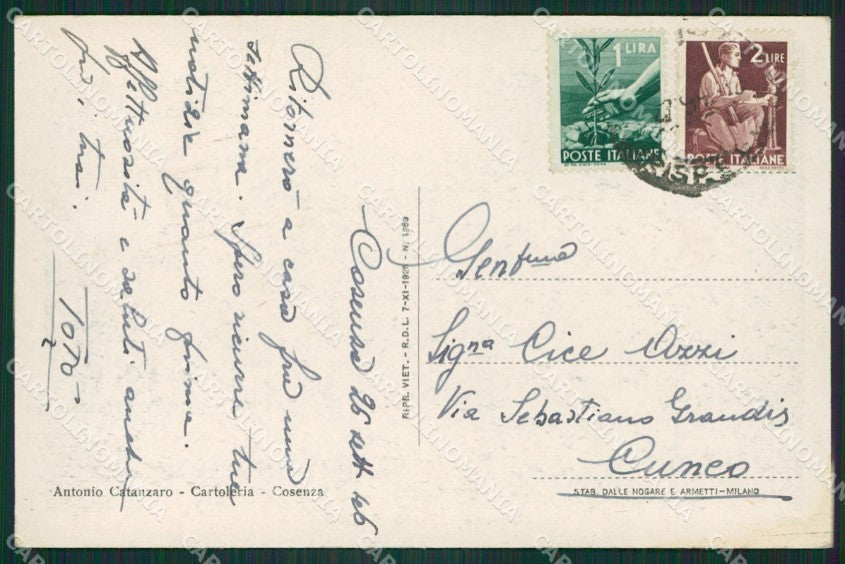 Cosenza 26 sett 46
Ritornerò a casa fra una
settimana. Spero ricevere tue
notizie quanto prima.
Affettuosità e saluti anche
fra i tuoi.
Totò
1 LIRA
POSTE ITALIANE
2 LIRE
POSTE ITALIANE
Gent.ma
Sig.na Cice Ozzi
Via Sebastiano Grandis
Cuneo
RIPR. VIET. - R.D.L. 7-XI-1925 - N. 1950
Antonio Catanzaro - Cartoleria - Cosenza
STAB. DALLE NOGARE E ARMETTI - MILANO
CARTOLINOMANIA